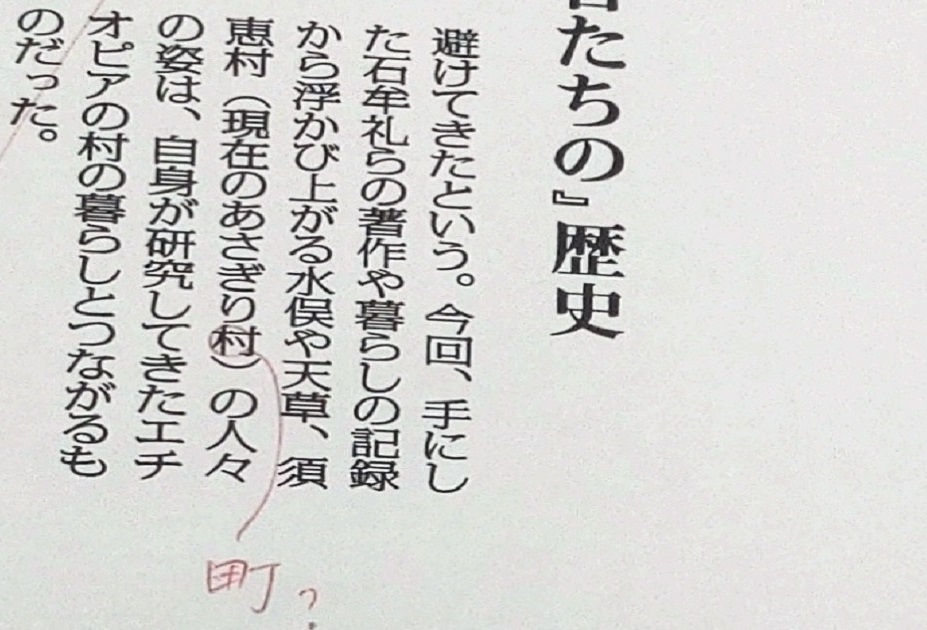 たちの』歴史
避けてきたという。今回、手にし
た石牟礼らの著作や暮らしの記録
から浮かび上がる水俣や天草、須
恵村（現在のあさぎり村）の人々
の姿は、自身が研究してきたエチ
オピアの村の暮らしとつながるも
のだった。
町?